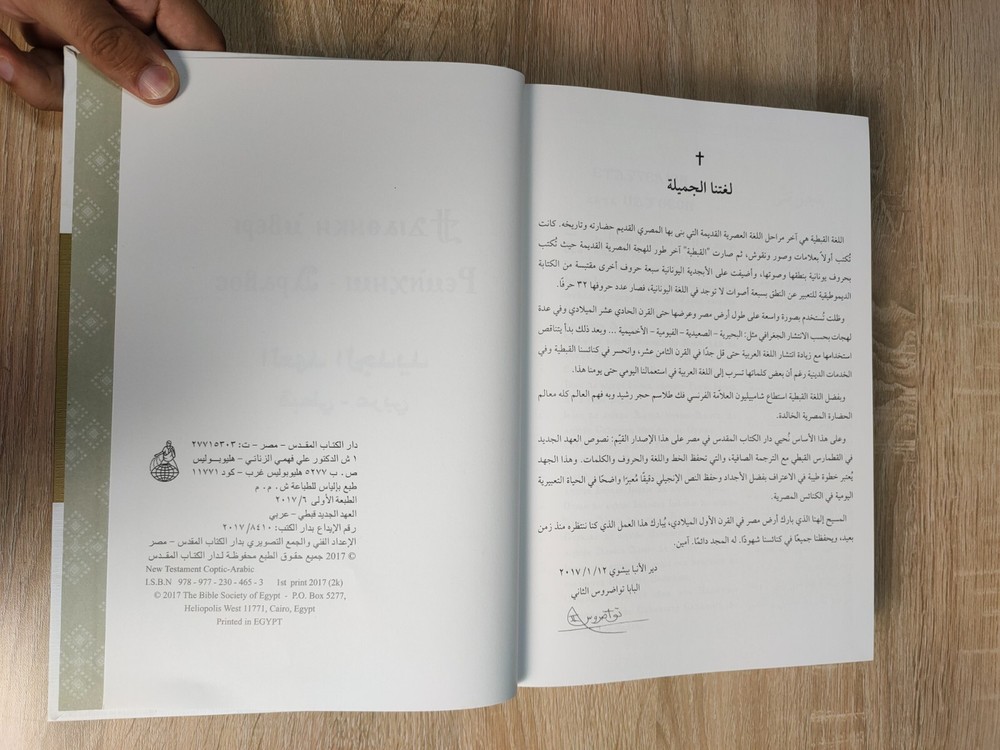 دار الكتاب المقدس – مصر – ت: ٢٧٧١٥٣٠٣
١ ش الدكتور علي فهمي الزناتي – هليوبــوليس
ص. ب ٥٢٧٧ هليوبوليس غرب – كود ١١٧٧١
طبع بإلياس للطباعة ش . م . م
الطبعة الأولى ٢٠١٧/٦
العهد الجديد قبطي – عربي
رقم الإيداع بدار الكتب: ٢٠١٧/٨٤١٠
الإعداد الفني والجمع التصويري بدار الكتاب المقدس – مصر
© 2017 جميع حقوق الطبع محفوظة لـدار الكتاب المقدس
New Testament Coptic-Arabic
I.S.BN 978 - 977 - 230 - 465 - 3 1st print 2017 (2k)
© 2017 The Bible Society of Egypt - P.O. Box 5277,
Heliopolis West 11771, Cairo, Egypt
Printed in EGYPT
لغتنا الجميلة
اللغة القبطية هي آخر مراحل اللغة العصرية القديمة التي بنى بها المصري القديم حضارته وتاريخه. كانت
تُكتب أولاً بعلامات وصور ونقوش، ثم صارت "القبطية" آخر طور للهجة المصرية القديمة حيث تُكتب
بحروف يونانية بنطقها وصوتها، وأضيفت على الأبجدية اليونانية سبعة حروف أخرى مقتبسة من الكتابة
الديموطيقية للتعبير عن النطق بسبعة أصوات لا توجد في اللغة اليونانية، فصار عدد حروفها ٣٢ حرفًا.
وظلت تُستخدم بصورة واسعة على طول أرض مصر وعرضها حتى القرن الحادي عشر الميلادي وفي عدة
لهجات بحسب الانتشار الجغرافي مثل: البحيرية – الصعيدية – الفيومية – الأخميمية ... وبعد ذلك بدأ يتناقص
استخدامها مع زيادة انتشار اللغة العربية حتى قل جدًا في القرن الثامن عشر، وانحسر في كنائسنا القبطية وفي
الخدمات الدينية رغم أن بعض كلماتها تسرب إلى اللغة العربية في استعمالنا اليومي حتى يومنا هذا.
وبفضل اللغة القبطية استطاع شامبيليون العلاّمة الفرنسي فك طلاسم حجر رشيد وبه فهم العالم كله معالم
الحضارة المصرية الخالدة.
وعلى هذا الأساس تُحيي دار الكتاب المقدس في مصر على هذا الإصدار القيّم: نصوص العهد الجديد
في القطمارس القبطي مع الترجمة الصافية، والتي تحفظ الخط واللغة والحروف والكلمات. وهذا الجهد
يُعتبر خطوة طيبة في الاعتراف بفضل الأجداد وحفظ النص الإنجيلي دقيقًا مُعبّرًا واضحًا في الحياة التعبيرية
اليومية في الكنائس المصرية.
المسيح إلهنا الذي بارك أرض مصر في القرن الأول الميلادي، يُبارك هذا العمل الذي كنا ننتظره منذ زمن
بعيد، ويحفظنا جميعًا في كنائسنا شهودًا. له المجد دائمًا. آمين.
دير الأنبا بيشوي ٢٠١٧/١/١٢
البابا تواضروس الثاني
تواضروس